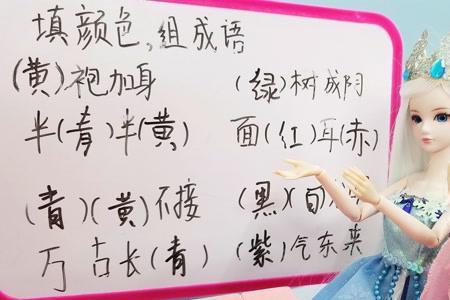 填颜色,组成语
(黄)袍加身 (绿)树成阴
半(青)半(黄) 面(红)耳(赤)
(青)(黄)不接 (黑)(白)
万古长(青) (紫)气东来